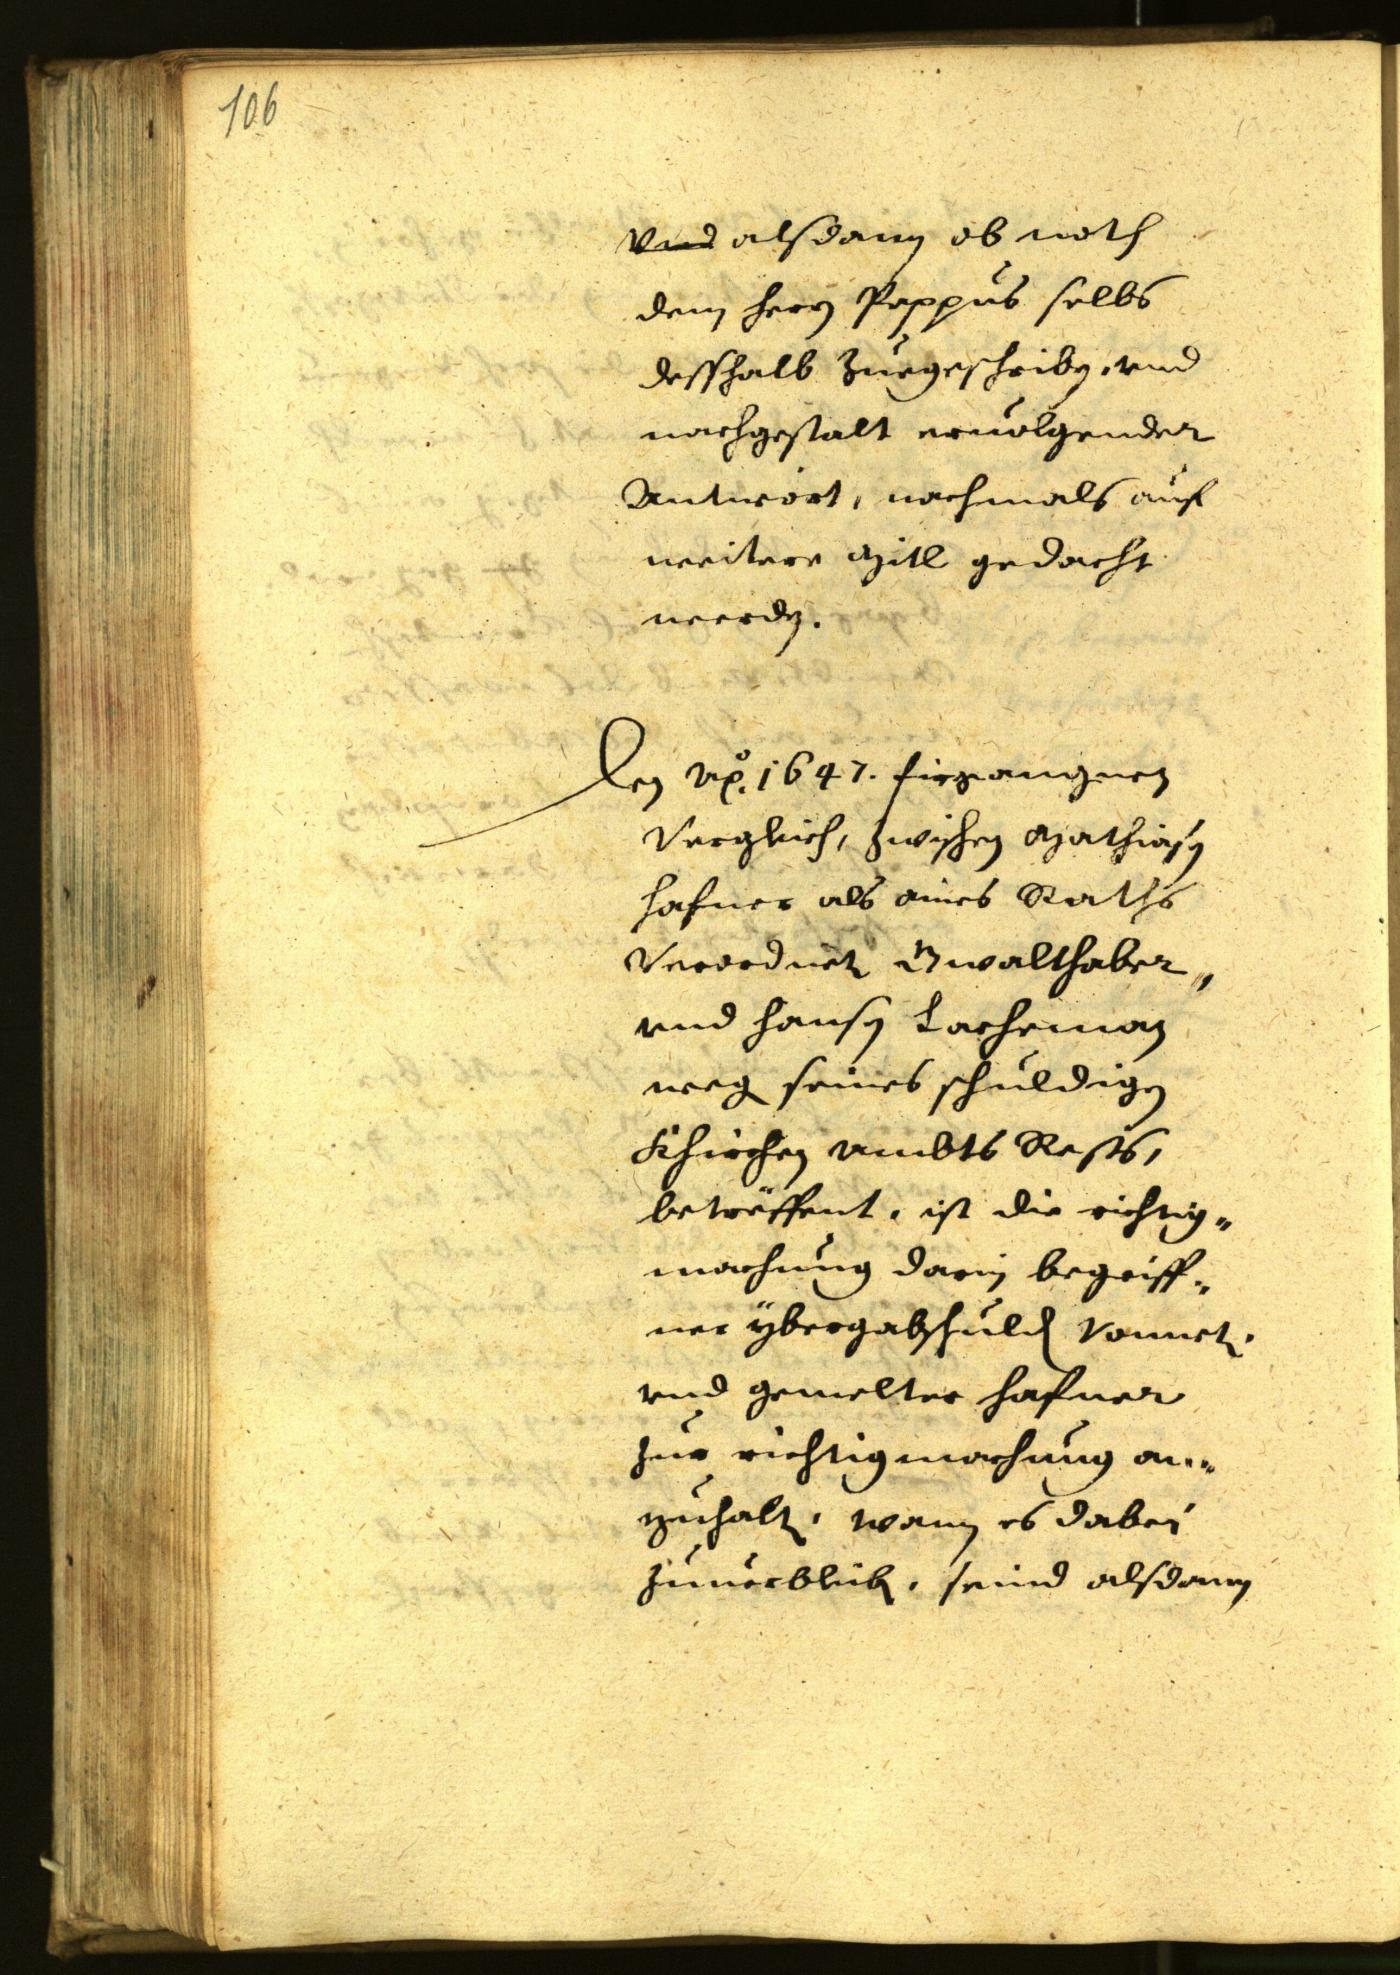 106
Vnd alsdann ob noth
dem herrn Pappus selbs
desshalb zuegeschriben, vnd
nachgestalt ervolgender
Antwort, nachmals auf
weitere Mitl gedacht
werden.
Den Ao. 1647. fürgangnen
Verglich, zwischen Mathiasn
Hafner als aines Raths
Verordneten Gwalthaber,,
vnd Hansn Lacheman
weg seines schuldigen
Khirchen Ambts Rests,
betreffent, ist die richtig,,
machung darin begriff,,
ner ybergabschuld Vonneten,
vnd gemelter Hafner
zur richtigmachung an,,
zuhalten, wann es dabei
zuuerbleiben, seind alsdann